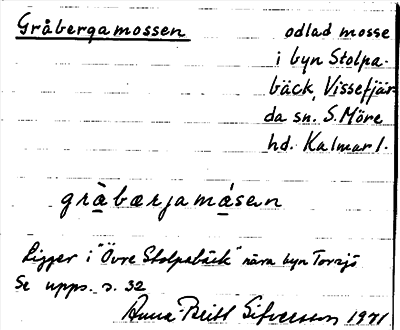 Gråbergamossen
odlad mosse
i byn Stolpa-
bäck, Vissefjär-
da sn. S. Möre
hd. Kalmar l.
gràbærjamåsen
Ligger i "Övre Stolpabäck" nära byn Torsjö
Se upps. s. 32
Anna-Britt Sifversson 1971